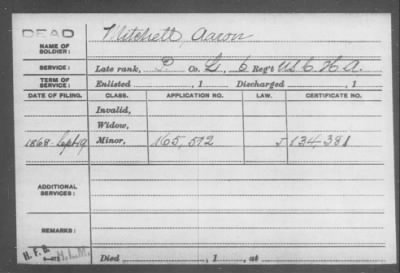 DEAD
NAME OF SOLDIER: Mitchell, Aaron
SERVICE: Late rank, P Co. L, 6 Reg't U.S.C.H.A.
TERM OF SERVICE: Enlisted , 1 Discharged , 1
DATE OF FILING. CLASS. APPLICATION NO. LAW. CERTIFICATE NO.
Invalid,
Widow,
1868-Sept-19 Minor, 165,512 J 134,381
ADDITIONAL SERVICES:
REMARKS:
H. F. B.
H.L.M.
Died , 1 , at